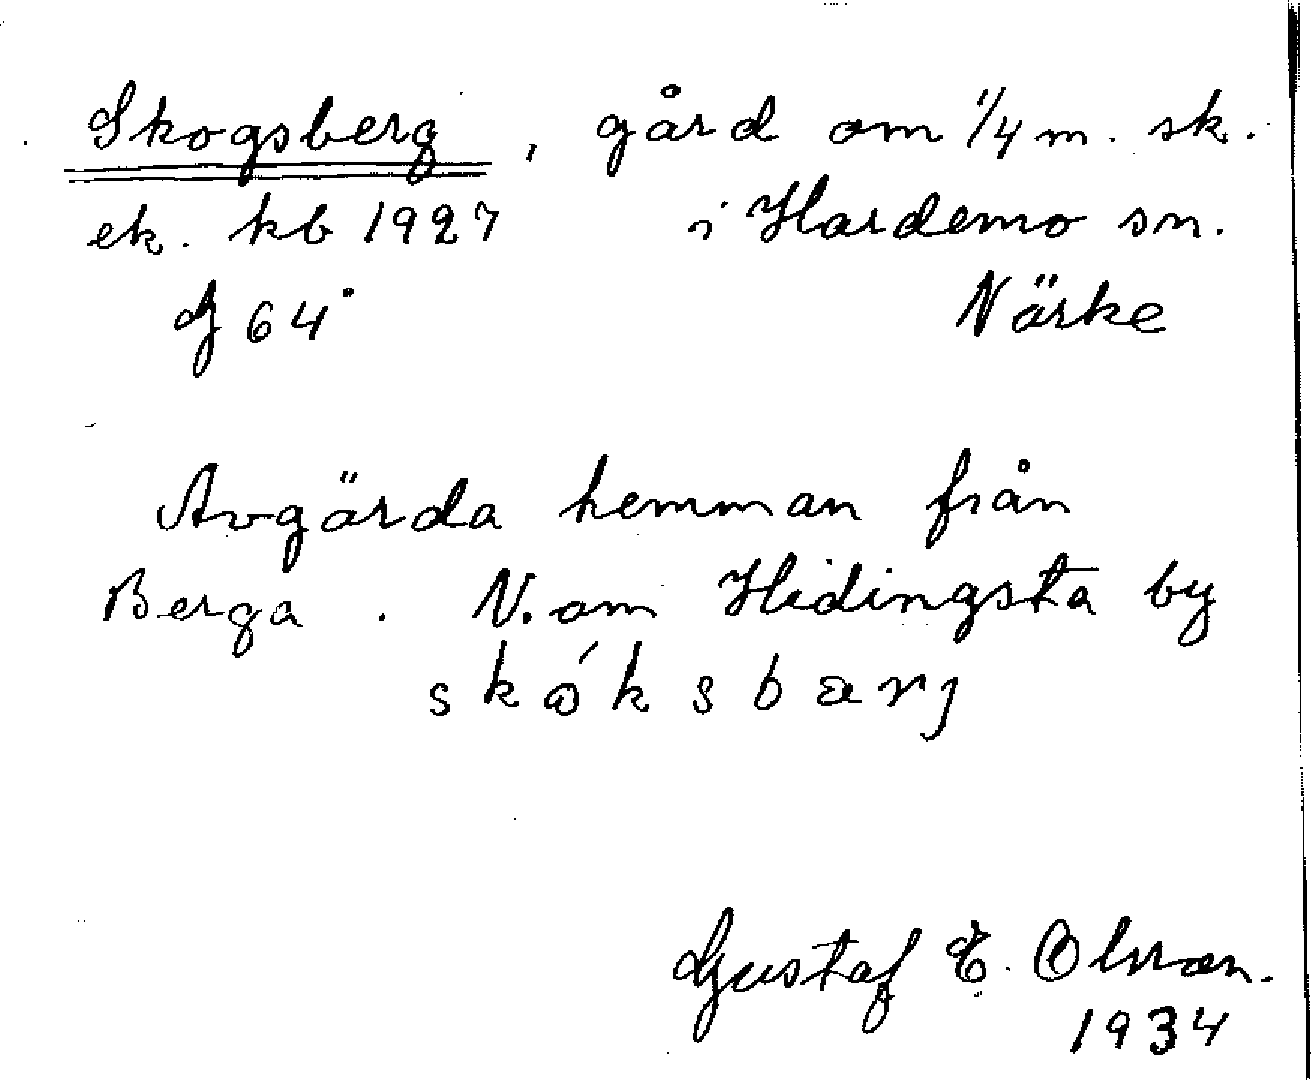 Skogsberg, gård om 1/4 m. sk.
ek. kb 1927 i Hardemo sn.
G 64 Närke
Avgärda hemman från
Berga. N. om Hidingsta by
skóksbærj
Gustaf E. Olsson.
1934